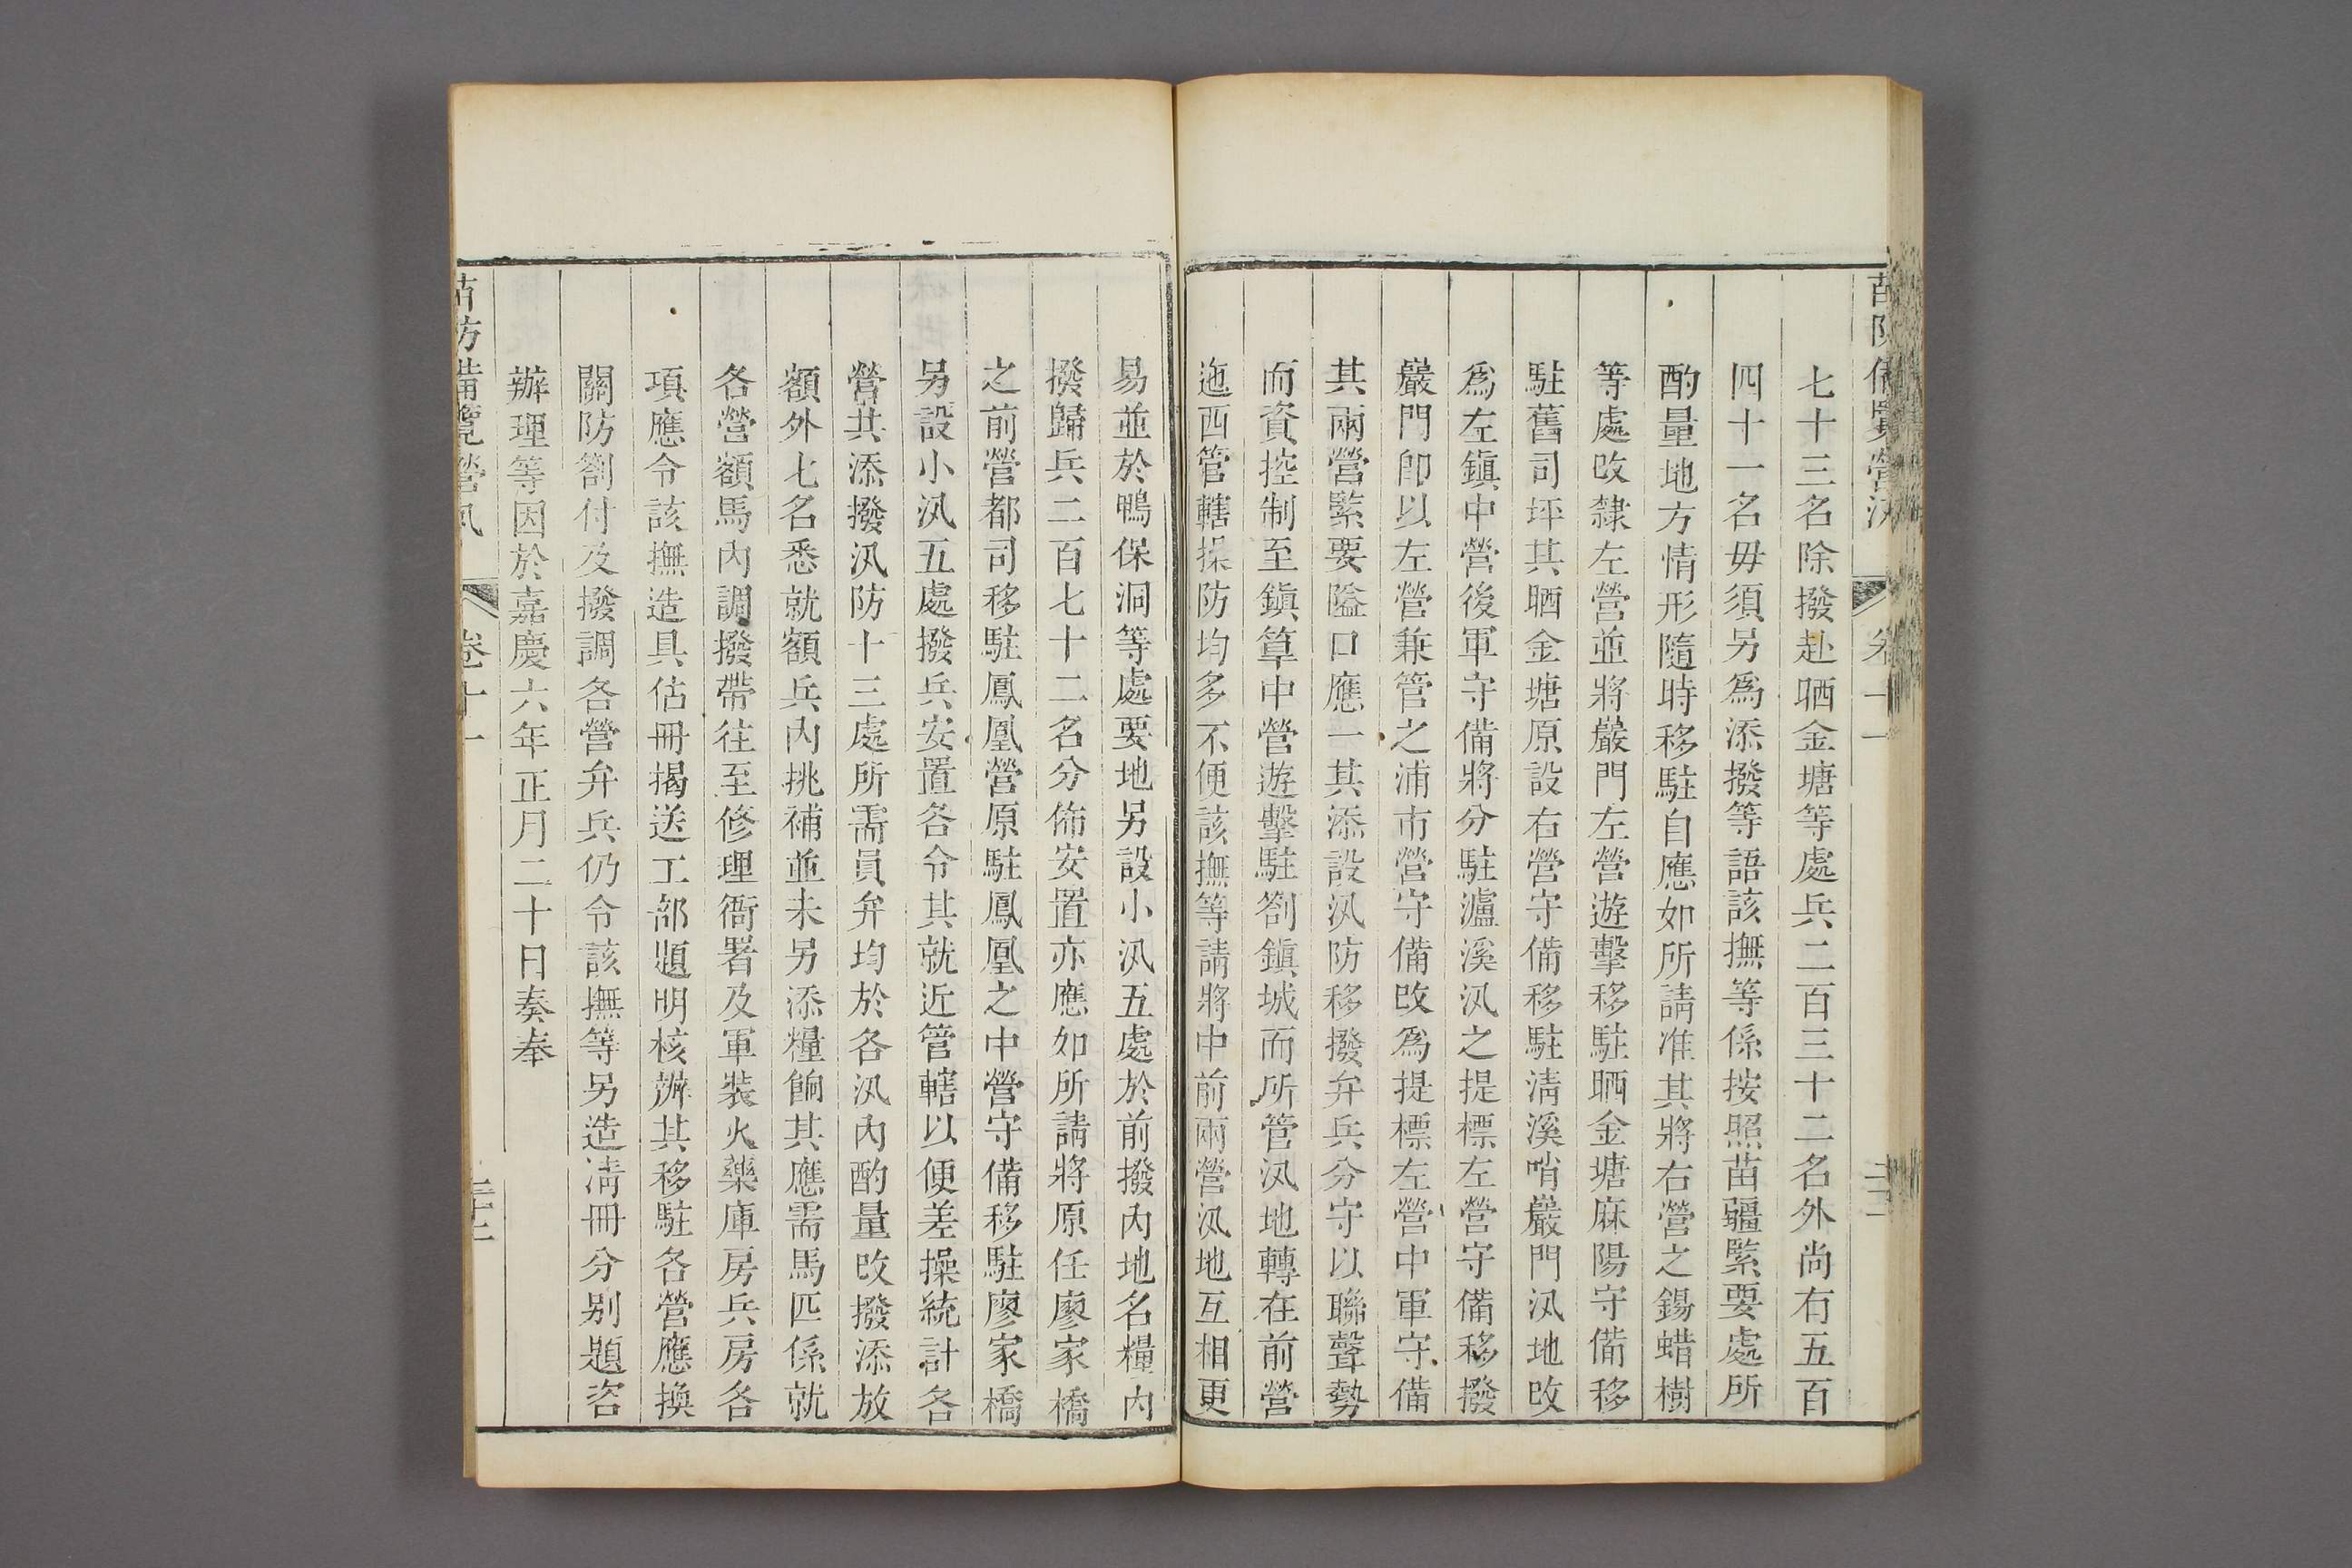 苗防備覽 營汛 卷十一
七十三名除撥赴晒金塘等處兵二百三十二名外尚有五百
四十一名毋須另爲添撥等語該撫等係按照苗疆緊要處所
酌量地方情形隨時移駐自應如所請准其將右營之錫蜡樹
等處改隸左營並將巖門左營遊擊移駐晒金塘麻陽守備移
駐舊司坪其晒金塘原設右營守備移駐淸溪哨巖門汛地改
爲左鎭中營後軍守備將分駐瀘溪汛之提標左營守備移撥
巖門卽以左營兼管之浦市營守備改爲提標左營中軍守備
其兩營緊要隘口應一其添設汛防移撥弁兵分守以聯聲勢
而資控制至鎭筸中營遊擊駐劄鎭城而所管汛地轉在前營
迤西管轄操防均多不便該撫等請將中前兩營汛地互相更
易並於鴨保洞等處要地另設小汛五處於前撥內地名糧內
撥歸兵二百七十二名分佈安置亦應如所請將原任廖家橋
之前營都司移駐鳳凰營原駐鳳凰之中營守備移駐廖家橋
另設小汛五處撥兵安置各令其就近管轄以便差操統計各
營共添撥汛防十三處所需員弁均於各汛內酌量改撥添放
額外七名悉就額兵內挑補並未另添糧餉其應需馬匹係就
各營額馬內調撥帶往至修理衙署及軍裝火藥庫房兵房各
項應令該撫造具估冊揭送工部題明核辦其移駐各營應換
關防劄付及撥調各營弁兵仍令該撫等另造淸冊分別題咨
辦理等因於嘉慶六年正月二十日奏奉
苗防備覽 營汛 卷十一